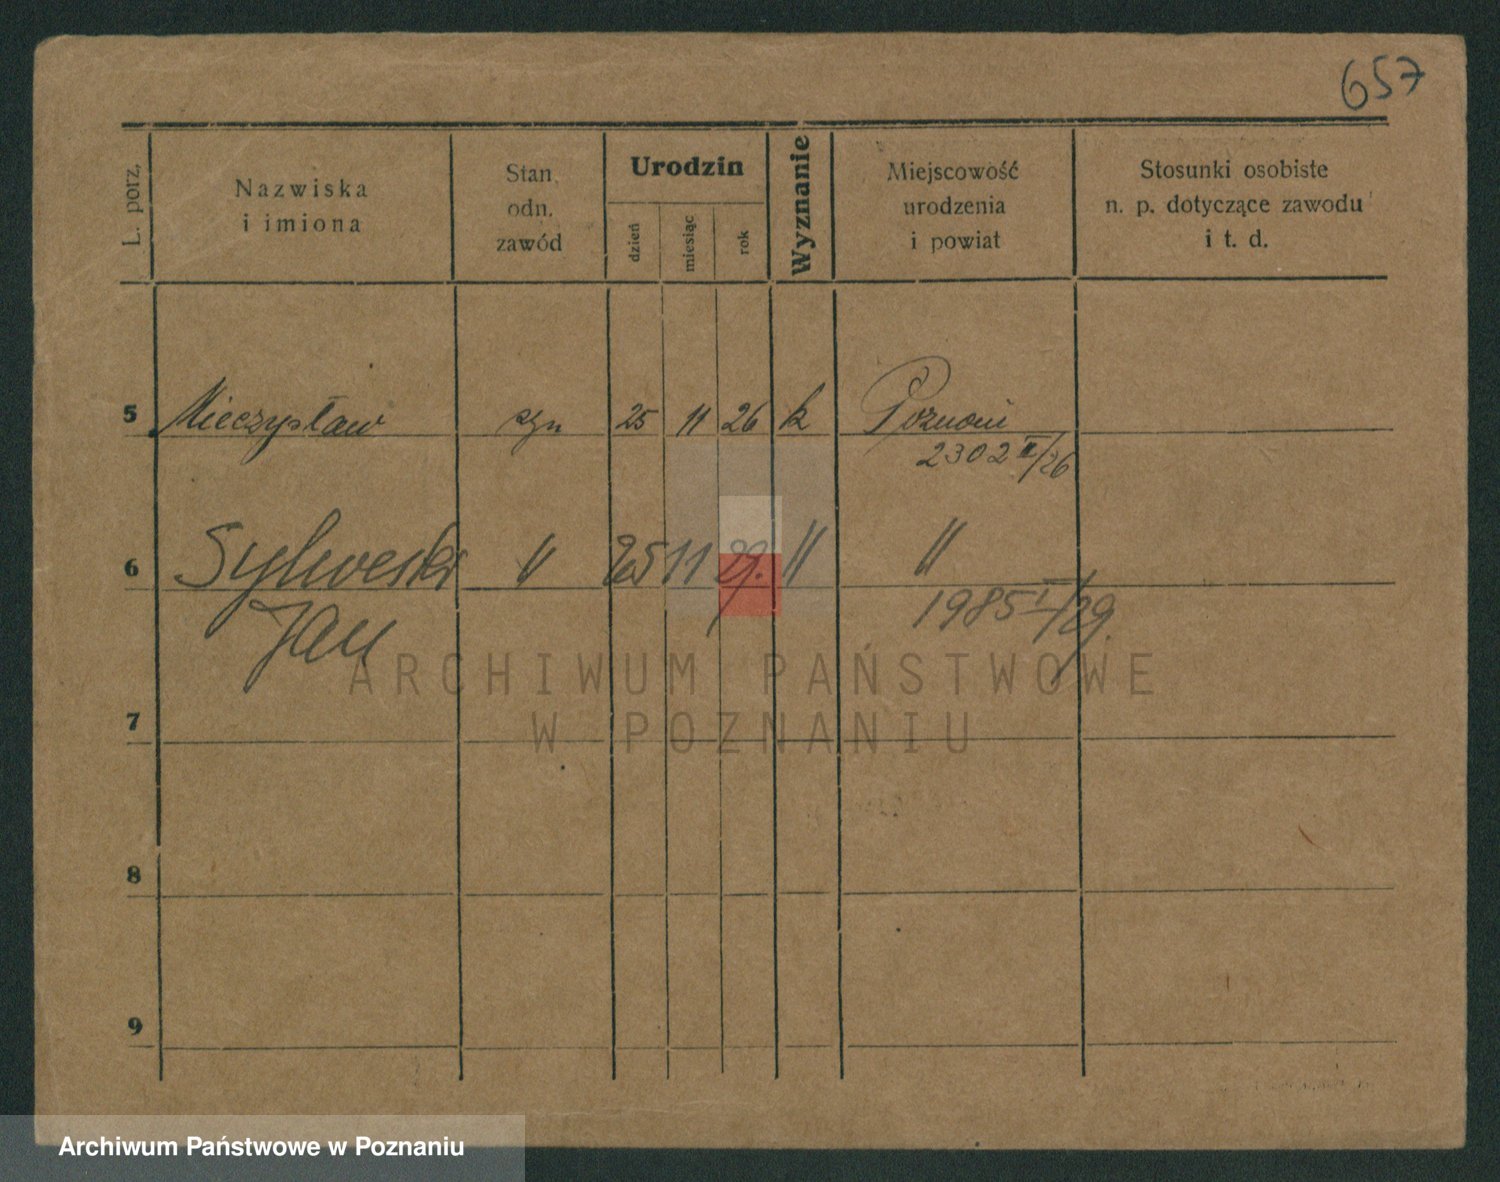 657
L. porz.
Nazwiska
i imiona
Stan
odn.
zawód
Urodzin
dzień
miesiąc
rok
Wyznanie
Miejscowość
urodzenia
i powiat
Stosunki osobiste
n. p. dotyczące zawodu
i t. d.
5 Mieczysław 25 11 26 k Poznań
2302 II/26
6 Sylwester " 25 11 29. " "
Jan 1985 I/29.
ARCHIWUM PAŃSTWOWE
W POZNANIU
7
8
9
Archiwum Państwowe w Poznaniu